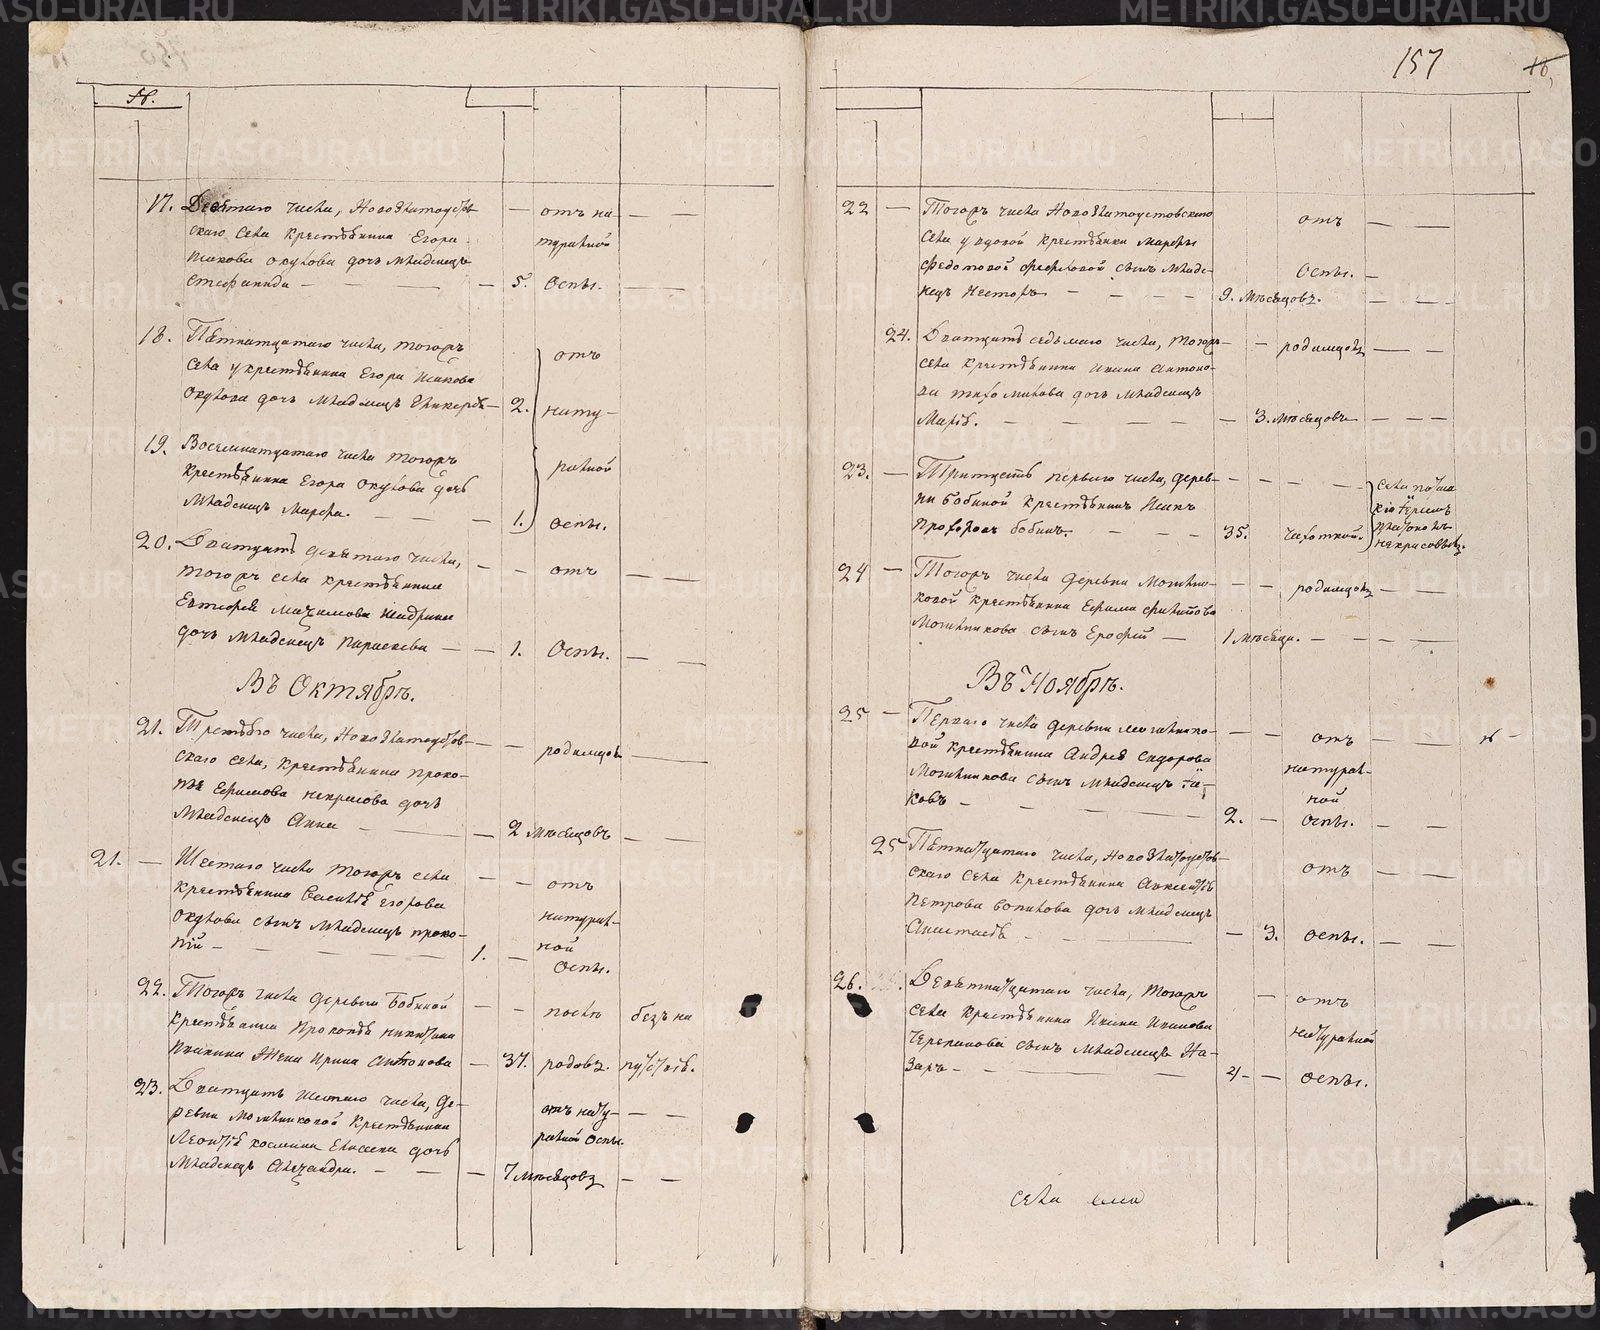 17. Десятаго числа, Новозлатоустов-
скаго села крестьянина Егора
Исакова Окулова дочь младенецъ
Стефанида — 5. отъ на-
туральной
Оспы.
18. Пятнатцатаго числа, тогожъ
села у крестьянина Егора Исакова
Окулова дочь младенецъ Гликерья — 2.
отъ
нату-
ральной
оспы.
19. Восемнатцатаго числа тогожъ
крестьянина Егора Окулова дочь
младенецъ Марфа. — 1.
20. Дватцать девятаго числа,
тогожъ села крестьянина
дочь младенецъ Параскева — 1.
отъ
Оспы.
Въ Октябрѣ.
21. Третьяго числа, Новозлатоустов-
скаго села, крестьянина Проко-
пья Ефимова Некрасова дочь
младенецъ Анна — 2 мѣсяцовъ
родимцовъ
21. — Шестаго числа тогожъ села
крестьянина Василья Егорова
Окулова сынъ младенецъ Проко-
пій — 1. —
отъ
натураль-
ной
Оспы.
22. Тогожъ числа деревни Бобиной
крестьянина Прокопья Никитина
жена Ирина Антонова — 37.
послѣ
родовъ.
безъ на
путствія.
23. Дватцать шестаго числа, де-
ревни Могильниковой крестьянина
Леонтья Космина дочь
младенецъ Александра. — 7 мѣсяцовъ
отъ нату-
ральной Оспы.
157
22 — Тогожъ числа Новозлатоустовскаго
села у вдовой крестьянки Марфы
Федотовой сынъ младе-
нецъ Несторъ — 9. мѣсяцовъ.
отъ
Оспы.
24. Дватцать седьмаго числа, тогожъ
села крестьянина Ивана Антоно-
ва Тихомирова дочь младенецъ
Марья. — 3. мѣсяцовъ
родимцовъ
23. — Тритцать перваго числа, дерев-
ни Бобиной крестьянинъ Исакъ
Прохоровъ Бобинъ. — 35. чахоткой.
села
Некрасовъ.
24 — Тогожъ числа деревни Могильни-
ковой крестьянина Ефима Филипова
Могильникова сынъ Ерофей — 1 мѣсяца.
родимцовъ
Въ Ноябрѣ.
25 — Перваго числа деревни Могильнико-
вой крестьянина Андрея Сидорова
Могильникова сынъ младенецъ Iя-
ковъ — 2. —
отъ
натураль-
ной
Оспы.
25 Пятнатцатаго числа, Новозлатоустов-
скаго села крестьянина Алексея
Петрова дочь младенецъ
Анастасья — 3.
отъ
оспы.
26. Девятнатцатаго числа, тогожъ
села крестьянина Ивана Иванова
Черепанова сынъ младенецъ На-
заръ — 4 —
отъ
натуральной
оспы.
села